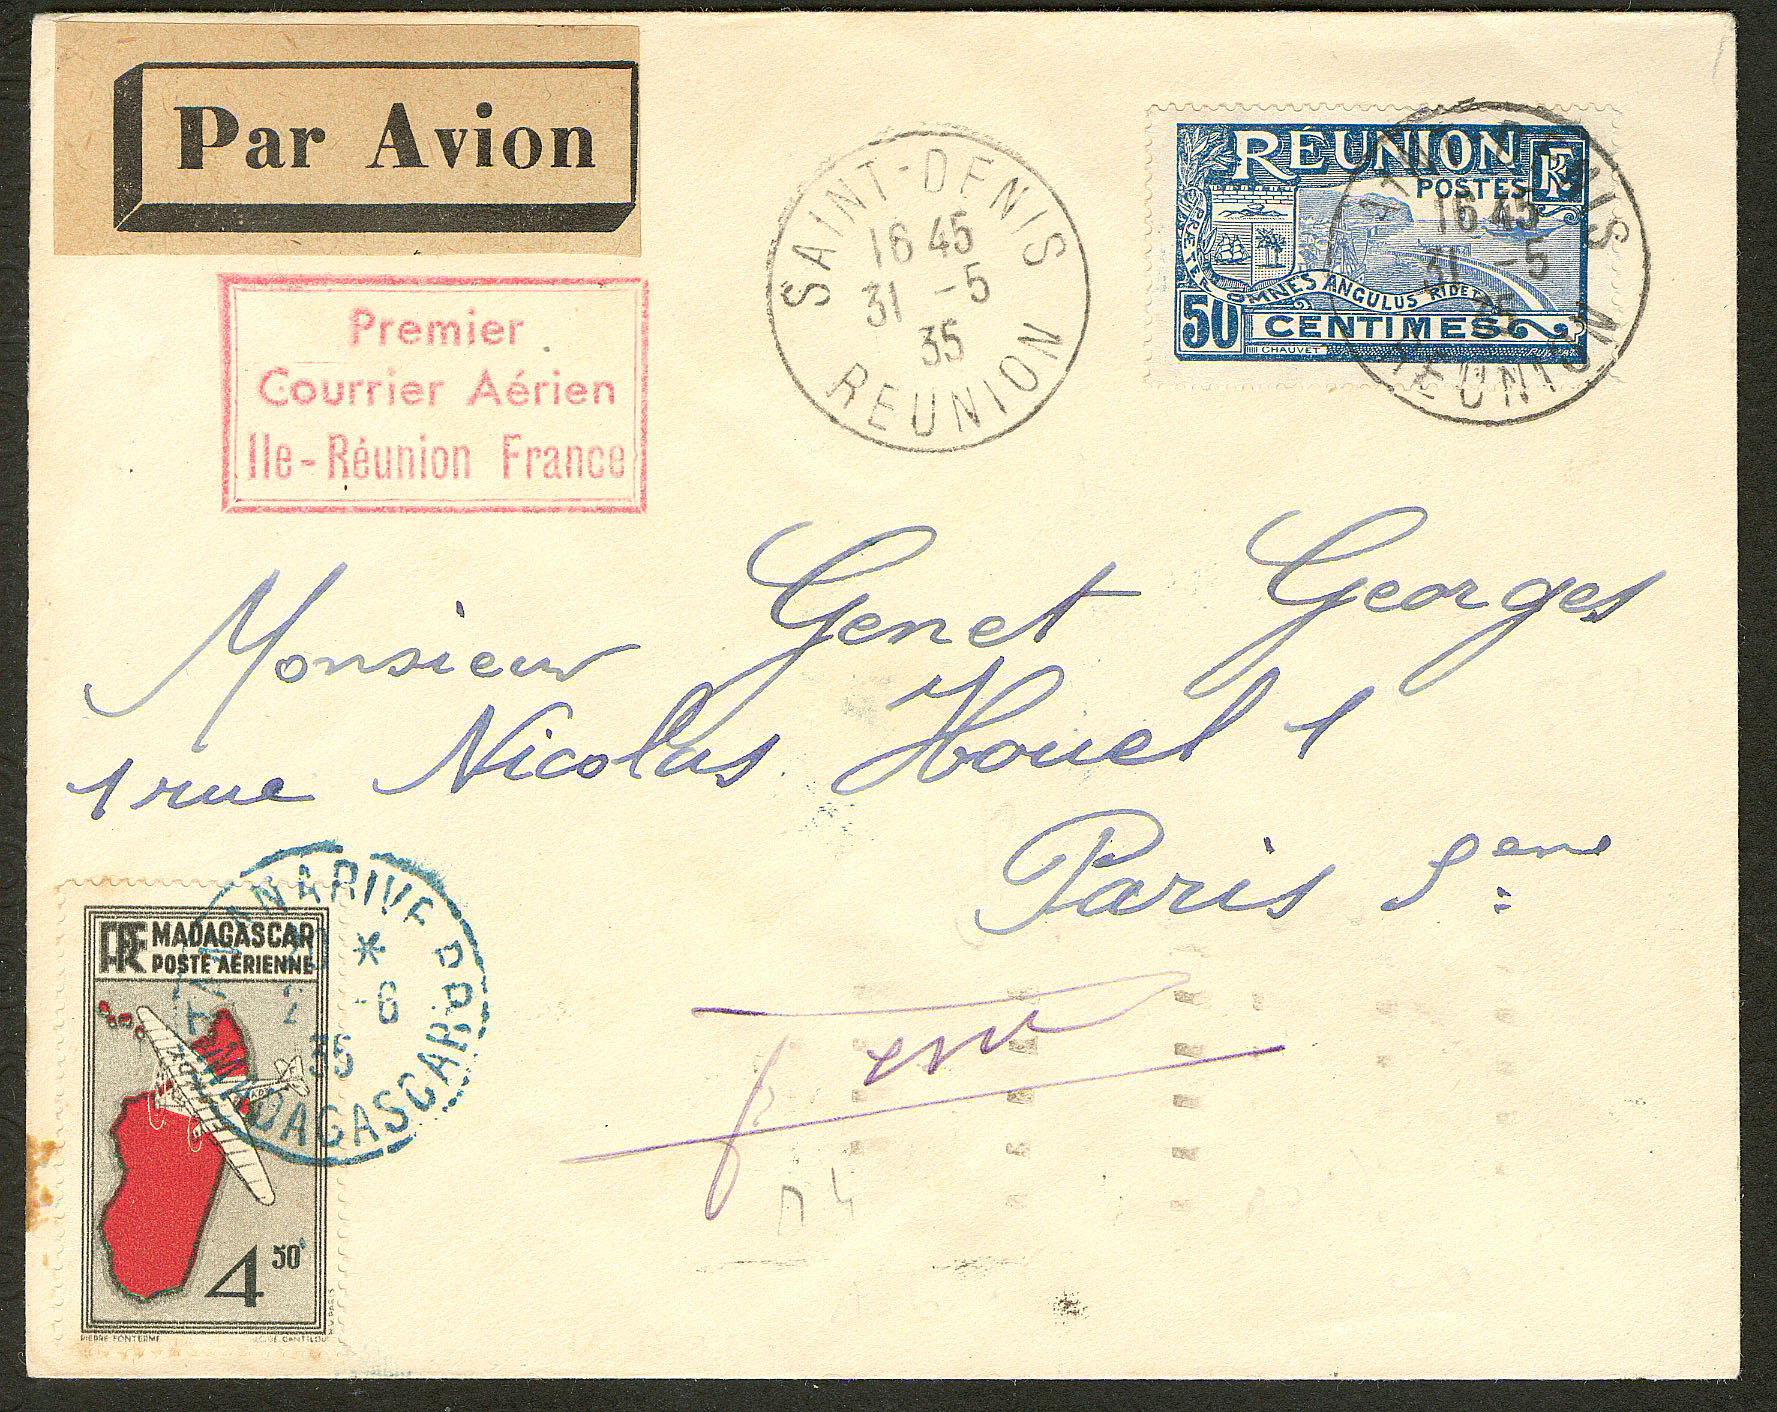 Par Avion
Premier
Courrier Aérien
Ile-Réunion France
SAINT-DENIS
16 45
31 -5
35
REUNION
RÉUNION RF
POSTES
PRÆTER OMNES ANGULUS RIDET
50 CENTIMES
CHAUVET
SAINT-DENIS
16 45
31 -5
35
REUNION
Monsieur Genet Georges
1 rue Nicolas Houel 1
Paris 5eme
TANANARIVE RP
*
2 -6
35
MADAGASCAR
RF MADAGASCAR
POSTE AÉRIENNE
4 50
PIERRE FONTERME